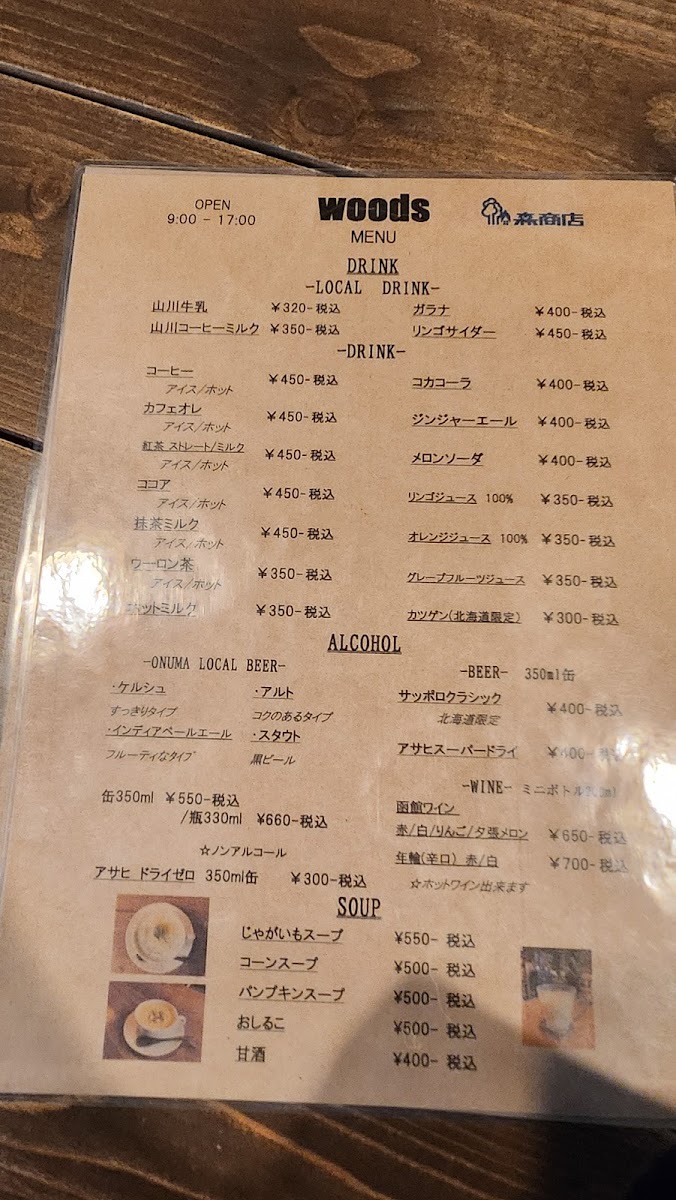 OPEN
9:00 - 17:00
woods
森商店
MENU
DRINK
-LOCAL DRINK-
山川牛乳 ¥320-税込 ガラナ ¥400-税込
山川コーヒーミルク ¥350-税込 リンゴサイダー ¥450-税込
-DRINK-
コーヒー ¥450-税込 コカコーラ ¥400-税込
アイス/ホット
カフェオレ ¥450-税込 ジンジャーエール ¥400-税込
アイス/ホット
紅茶 ストレート/ミルク ¥450-税込 メロンソーダ ¥400-税込
アイス/ホット
ココア ¥450-税込 リンゴジュース 100% ¥350-税込
アイス/ホット
抹茶ミルク ¥450-税込 オレンジジュース 100% ¥350-税込
アイス/ホット
ウーロン茶 ¥350-税込 グレープフルーツジュース ¥350-税込
アイス/ホット
ホットミルク ¥350-税込 カツゲン(北海道限定) ¥300-税込
ALCOHOL
-ONUMA LOCAL BEER-
・ケルシュ ・アルト
すっきりタイプ コクのあるタイプ
・インディアペールエール ・スタウト
フルーティなタイプ 黒ビール
缶350ml ¥550-税込
/瓶330ml ¥660-税込
☆ノンアルコール
アサヒ ドライゼロ 350ml缶 ¥300-税込
-BEER- 350ml缶
サッポロクラシック ¥400-税込
北海道限定
アサヒスーパードライ ¥400-税込
-WINE- ミニボトル
函館ワイン
赤/白/りんご/夕張メロン ¥650-税込
年輪(辛口) 赤/白 ¥700-税込
☆ホットワイン出来ます
SOUP
じゃがいもスープ ¥550- 税込
コーンスープ ¥500- 税込
パンプキンスープ ¥500- 税込
おしるこ ¥500- 税込
甘酒 ¥400- 税込